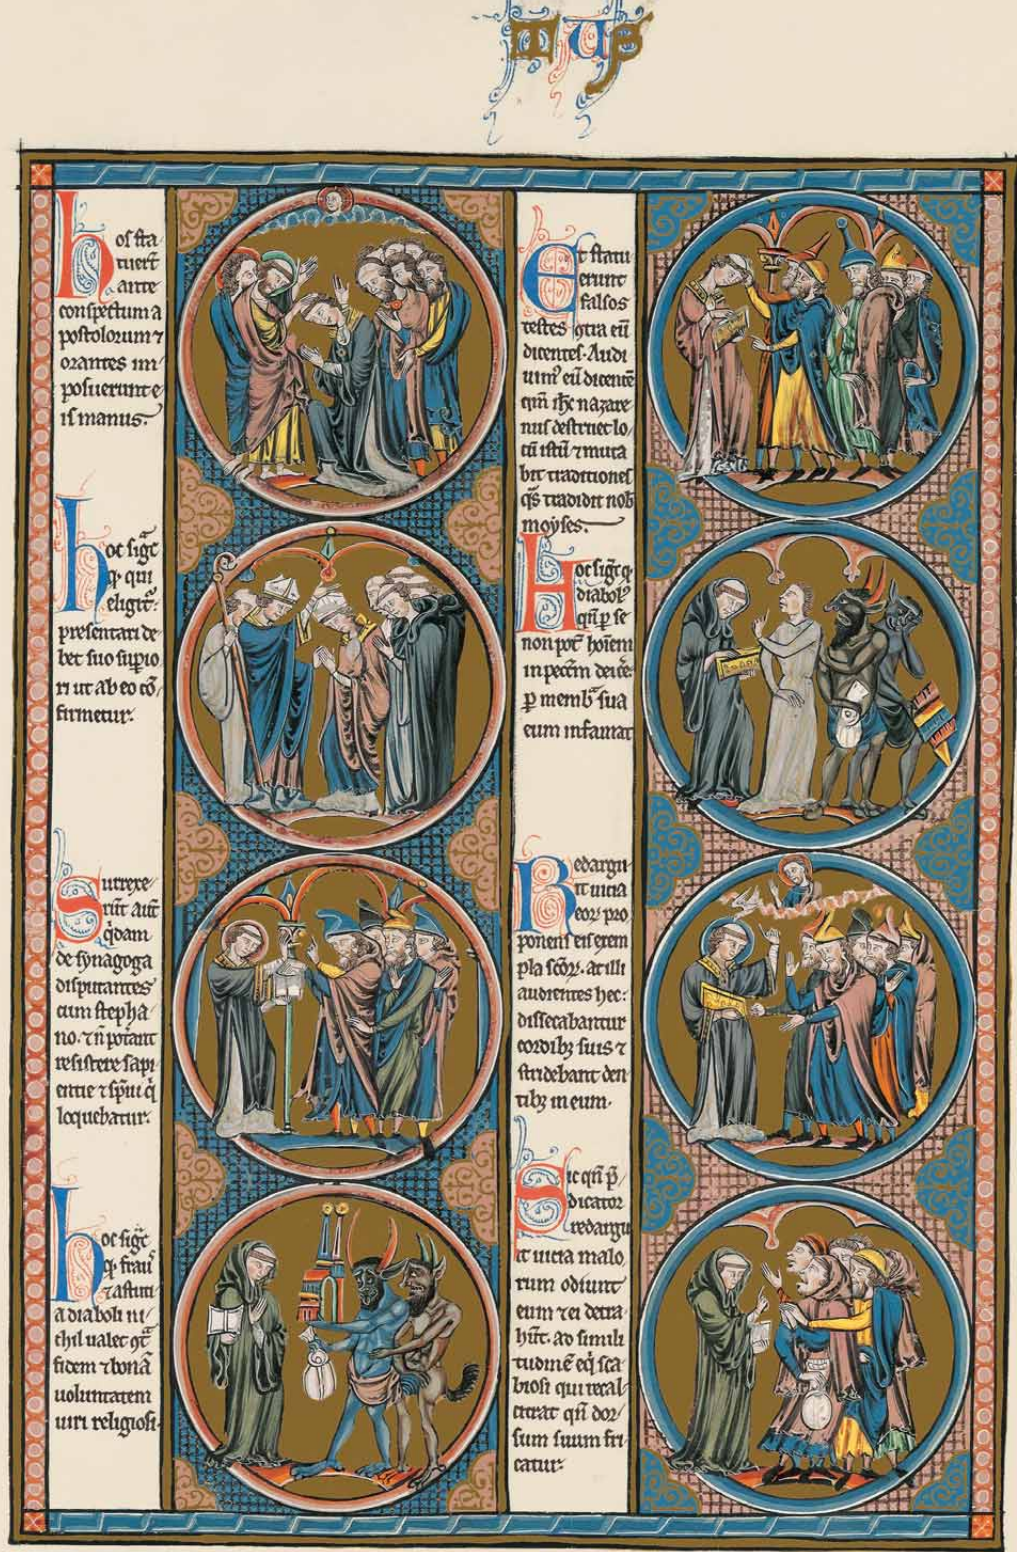 hos sta
tuert̄
ante
conspectum a
postolorum ⁊
orantes im
posuerunt e
is manus.
hoc sig̅t
q̇ qui
eligit̃:
presentari de
bet suo sup̲io
ri ut ab eo cō
firmetur.
Surrexe
rūt aūt
q̇dam
de synagoga
disputantes
cum stepha
no. ⁊ n̄ potāt
resistere sapi
entie ⁊ sp̄ui q̇
loquebatur.
hoc sig̅t
q̇ frau᷒
⁊ astuti
a diaboli ni
chil ualet ꝯt̄
fidem ⁊ bonā
uoluntatem
uiri religiosi.
Et statu
erunt
falsos
testes
dicentes. Audi
uim᷒ eū dicentē
qm̄ ihc nazare
nus destruet lo
cū istū ⁊ muta
bit traditiones
q̄s tradidit nob̄
moyses.
Hoc sig̅t q̇
diabol᷒
qn̄ p̲ se
non pot̄ hoīem
in pctm̄ deicē
p̲ memb̄ sua
eum infamat
Redargu
it uicia
eoꝝ pro
ponens eis exem
pla sc̄oꝝ. at illi
audientes hec:
dissecabantur
cordibꝫ suis ⁊
stridebant den
tibꝫ in eum.
Sic qn̄ p̄
dicator
redargu
it uicia malo
rum odiunt
eum ⁊ ei detra
hūt. ad simili
tudinē eq̇ sca
biosi qui recal
citrat qn̄ dor
sum suum fri
catur.